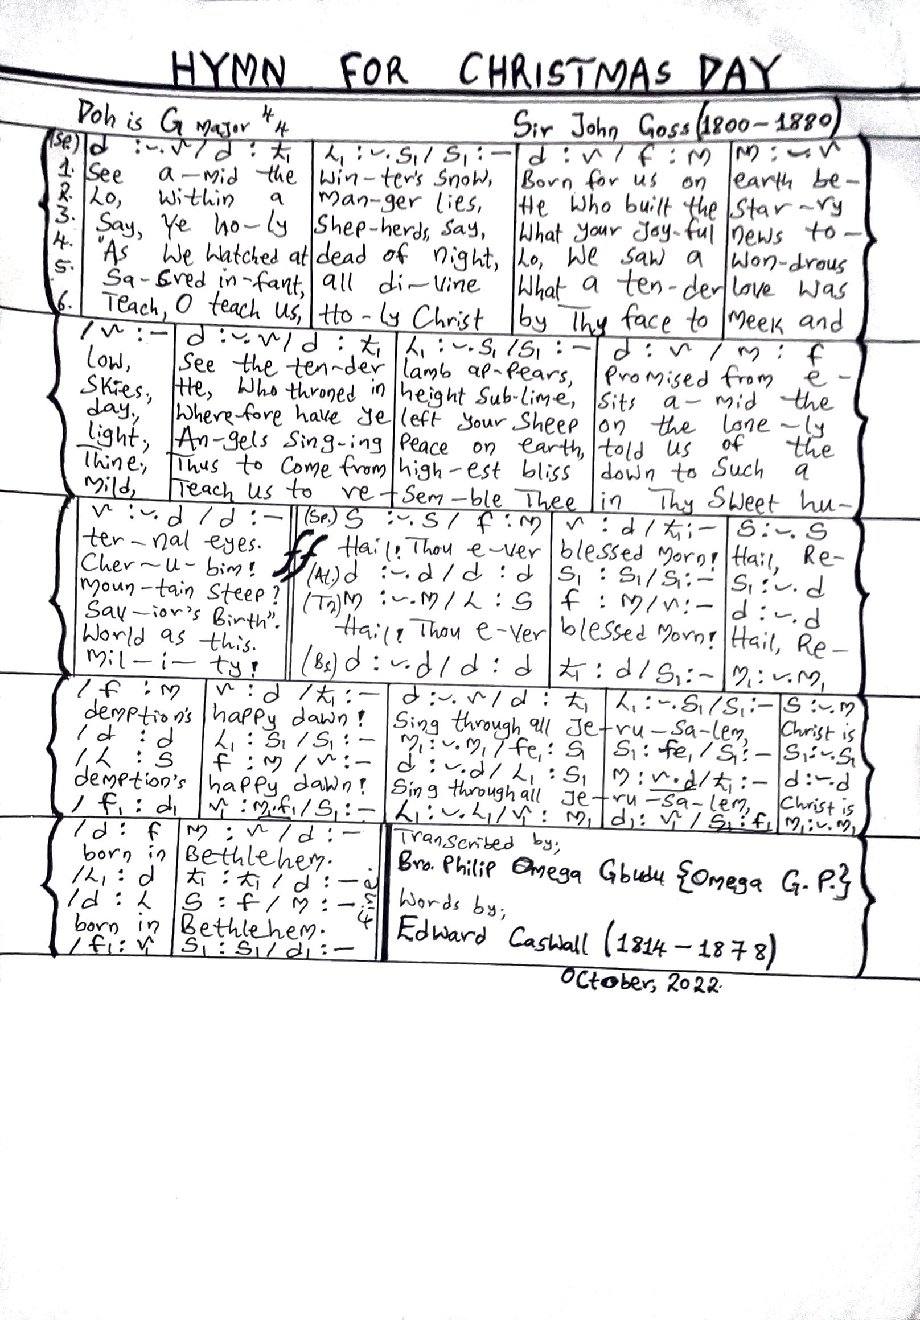 HYMN FOR CHRISTMAS DAY
Doh is G Major 4/4 Sir John Goss (1800-1880)
(Se) d :-.r / d : t₁ | l₁ :-.s₁ / s₁ :- | d : r / f : m | m :-.r
1. See a-mid the | Win-ter's Snow, | Born for us on | earth be-
2. Lo, Within a | Man-ger lies, | He Who built the | Star-ry
3. Say, Ye ho-ly | Shep-herds, Say, | What Your Joy-ful | news to-
4. "As We Watched at | dead of night, | Lo, We saw a | Won-drous
5. Sa-cred in-fant, | all di-vine | What a ten-der | love was
6. Teach, O teach us, | Ho-ly Christ | by Thy face to | Meek and
/ r :- | d :-.r / d : t₁ | l₁ :-.s₁ / s₁ :- | d : r / m : f
low, | See the ten-der | lamb ap-pears, | Promised from e-
Skies, | He, Who throned in | height Sub-lime, | Sits a-mid the
day, | Where-fore have ye | left your Sheep | on the lone-ly
light, | An-gels Sing-ing | Peace on earth, | told us of the
Thine, | Thus to Come from | high-est bliss | down to Such a
Mild, | Teach us to re- | Sem-ble Thee | in Thy Sweet hu-
r :-.d / d :- | (Sp.) s :-.s / f : m | r : d / t₁ :- | s :-.s
ter-nal eyes. | ff Hail! Thou e-ver | blessed Morn! | Hail, Re-
Cher-u-bim! | (Al.) d :-.d / d : d | s₁ : s₁ / s₁ :- | s₁ :-.d
Moun-tain Steep? | (Tn) m :-.m / l : s | f : m / r :- | d :-.d
Sav-ior's Birth". | Hail! Thou e-ver | blessed Morn! | Hail, Re-
World as this.
Mil-i-ty! | (Bs) d :-.d / d : d | t₁ : d / s₁ :- | m₁ :-.m₁
/ f : m | r : d / t₁ :- | d :-.r / d : t₁ | l₁ :-.s₁ / s₁ :- | s :-.m
demption's | happy dawn! | Sing through all Je- | ru-Sa-lem, | Christ is
/ d : d | l₁ : s₁ / s₁ :- | m₁ :-.m₁ / fe₁ : s₁ | s₁ : fe₁ / s₁ :- | s₁ :-.s₁
/ l : s | f : m / r :- | d :-.d / l₁ : s₁ | m : r.d / t₁ :- | d :-.d
demption's | happy dawn! | Sing through all Je- | ru-Sa-lem, | Christ is
/ f₁ : d₁ | r₁ : m₁.f₁ / s₁ :- | l₁ :-.l₁ / r₁ : m₁ | d₁ : r₁ / s₁ : f₁ | m₁ :-.m₁
/ d : f | m : r / d :-
born in | Bethlehem.
/ l₁ : d | t₁ : t₁ / d :-
/ d : l | s : f / m :-
born in | Bethlehem.
/ f₁ : r₁ | s₁ : s₁ / d₁ :-
Transcribed by;
Bro. Philip Omega Gbudu {Omega G. P.}
Words by;
Edward Caswall (1814-1878)
October, 2022.